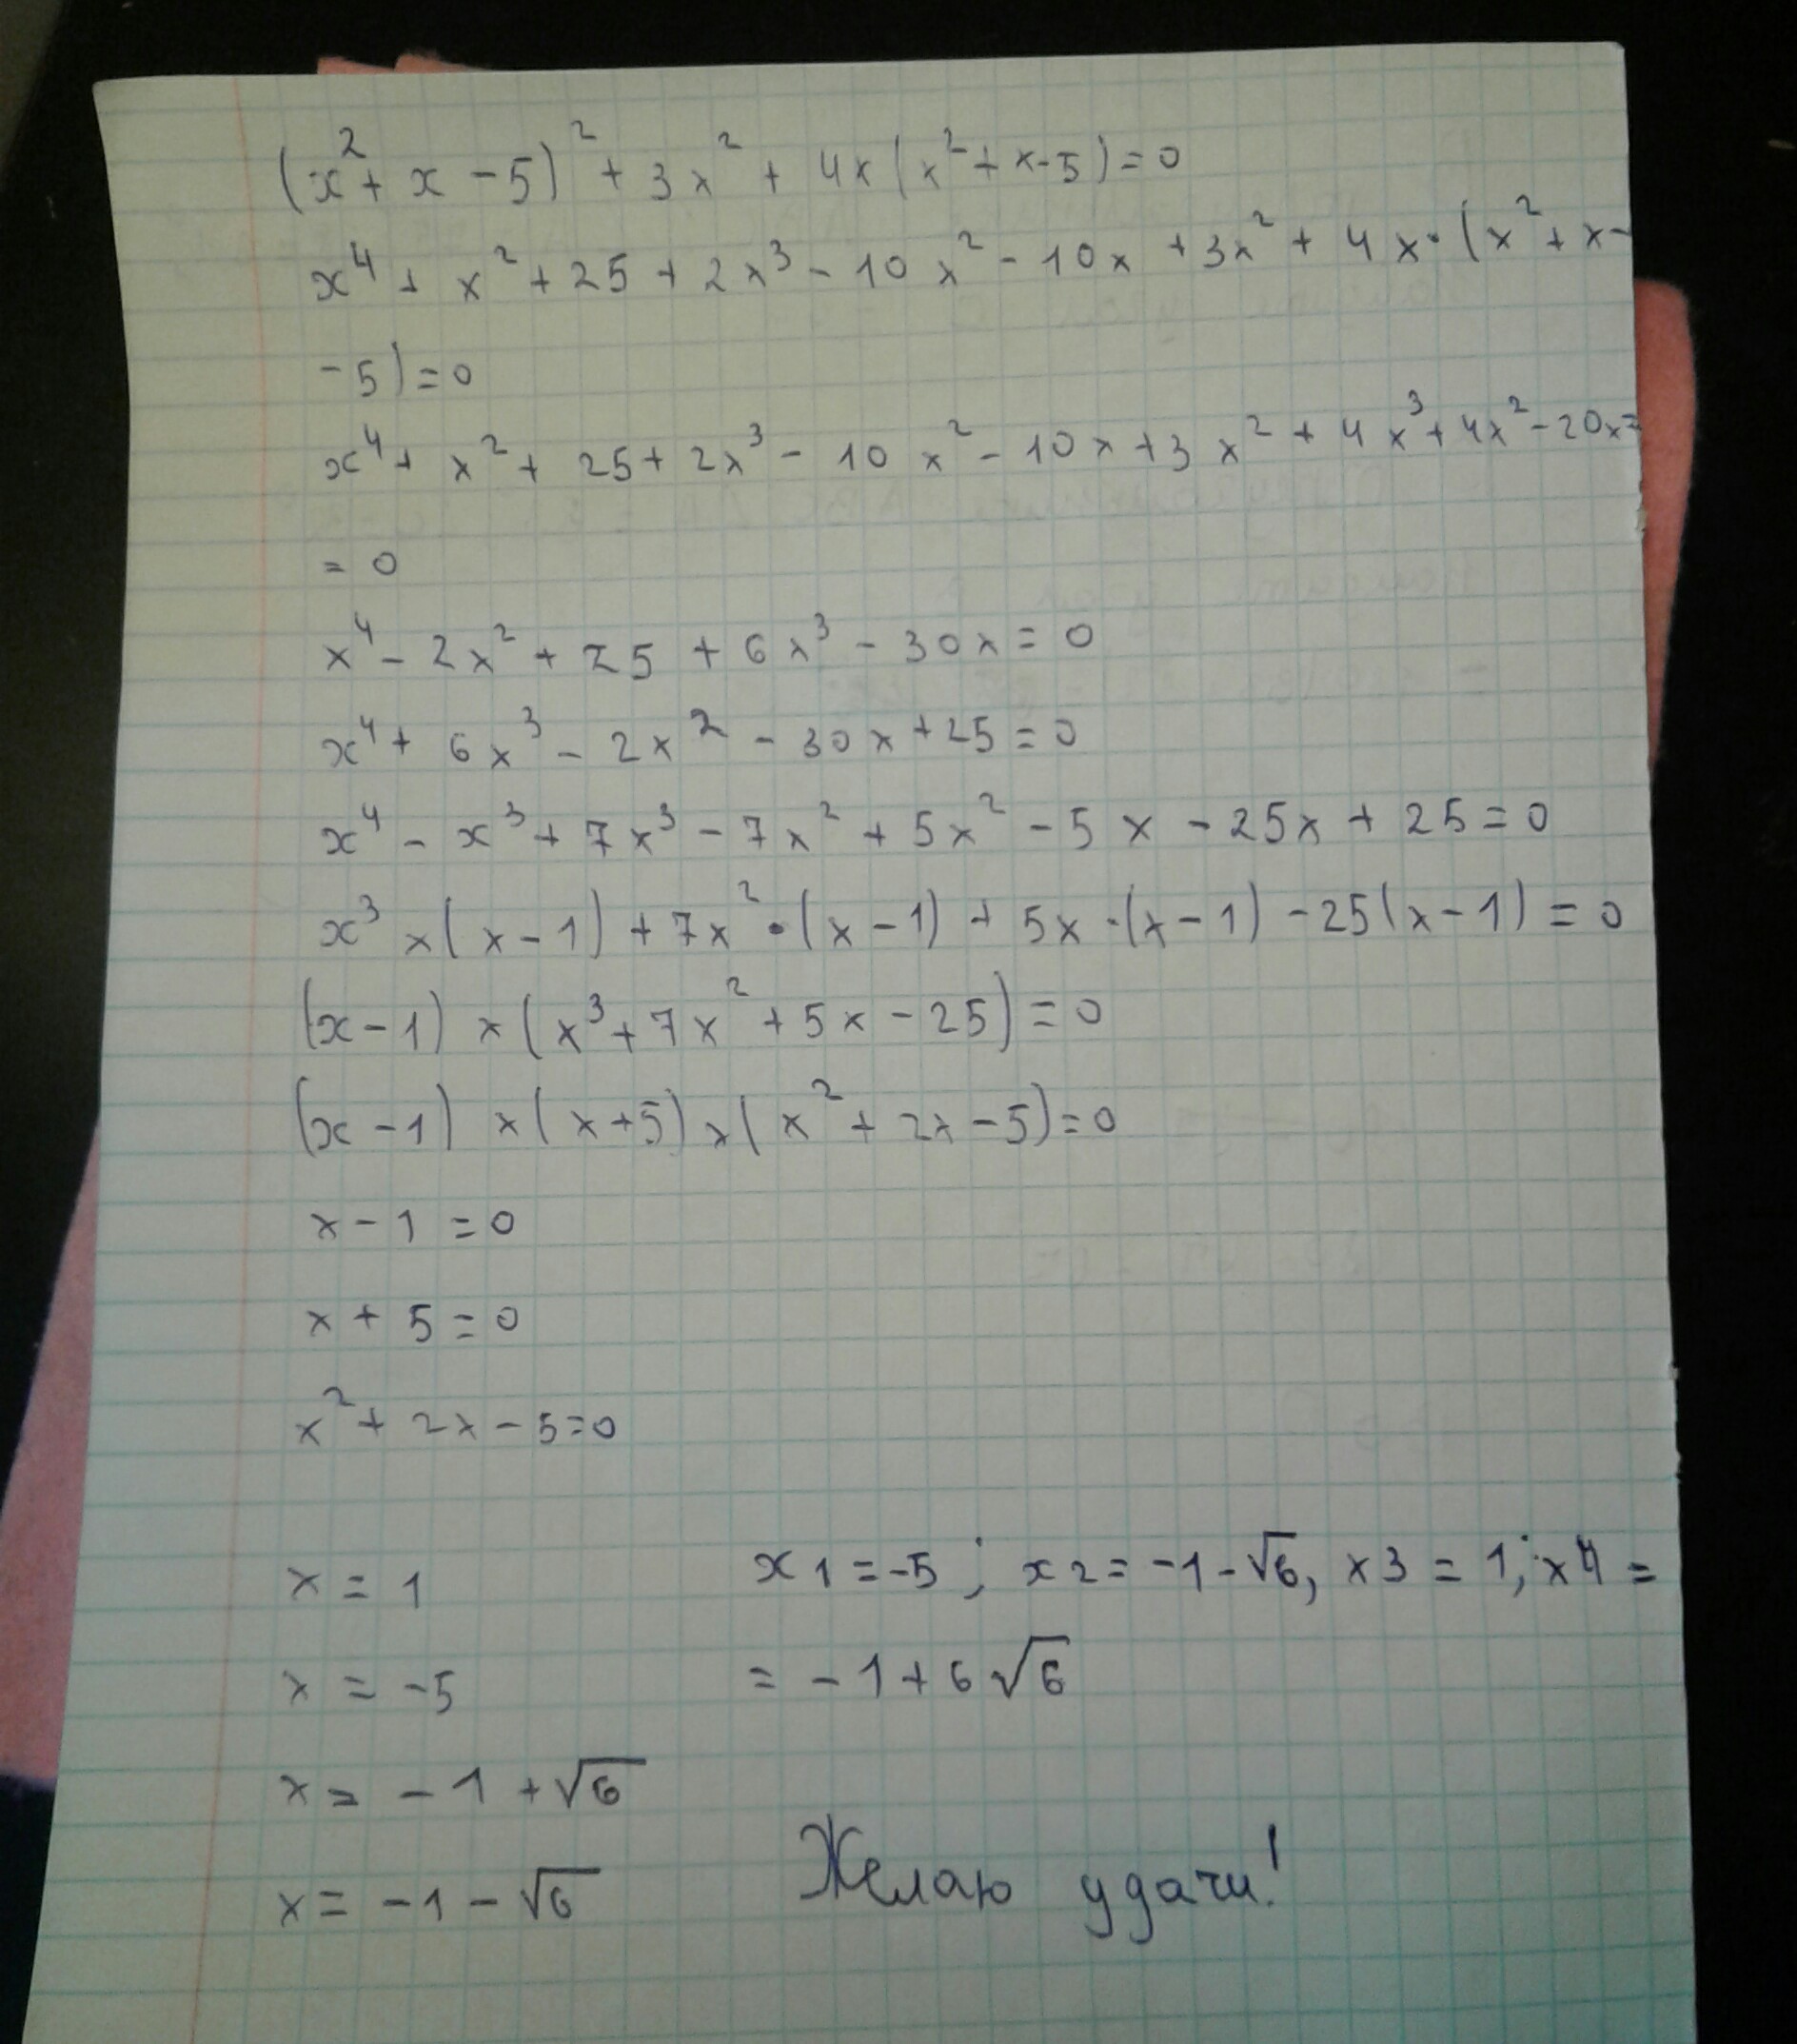 (x²+x-5)²+3x²+4x(x²+x-5)=0
x⁴+x²+25+2x³-10x²-10x+3x²+4x·(x²+x-
-5)=0
x⁴+x²+25+2x³-10x²-10x+3x²+4x³+4x²-20x=
=0
x⁴-2x²+25+6x³-30x=0
x⁴+6x³-2x²-30x+25=0
x⁴-x³+7x³-7x²+5x²-5x-25x+25=0
x³×(x-1)+7x²·(x-1)+5x·(x-1)-25(x-1)=0
(x-1)×(x³+7x²+5x-25)=0
(x-1)×(x+5)×(x²+2x-5)=0
x-1=0
x+5=0
x²+2x-5=0
x=1
x=-5
x=-1+√6
x=-1-√6
x1=-5; x2=-1-√6, x3=1; x4=
=-1+6√6
Желаю удачи!